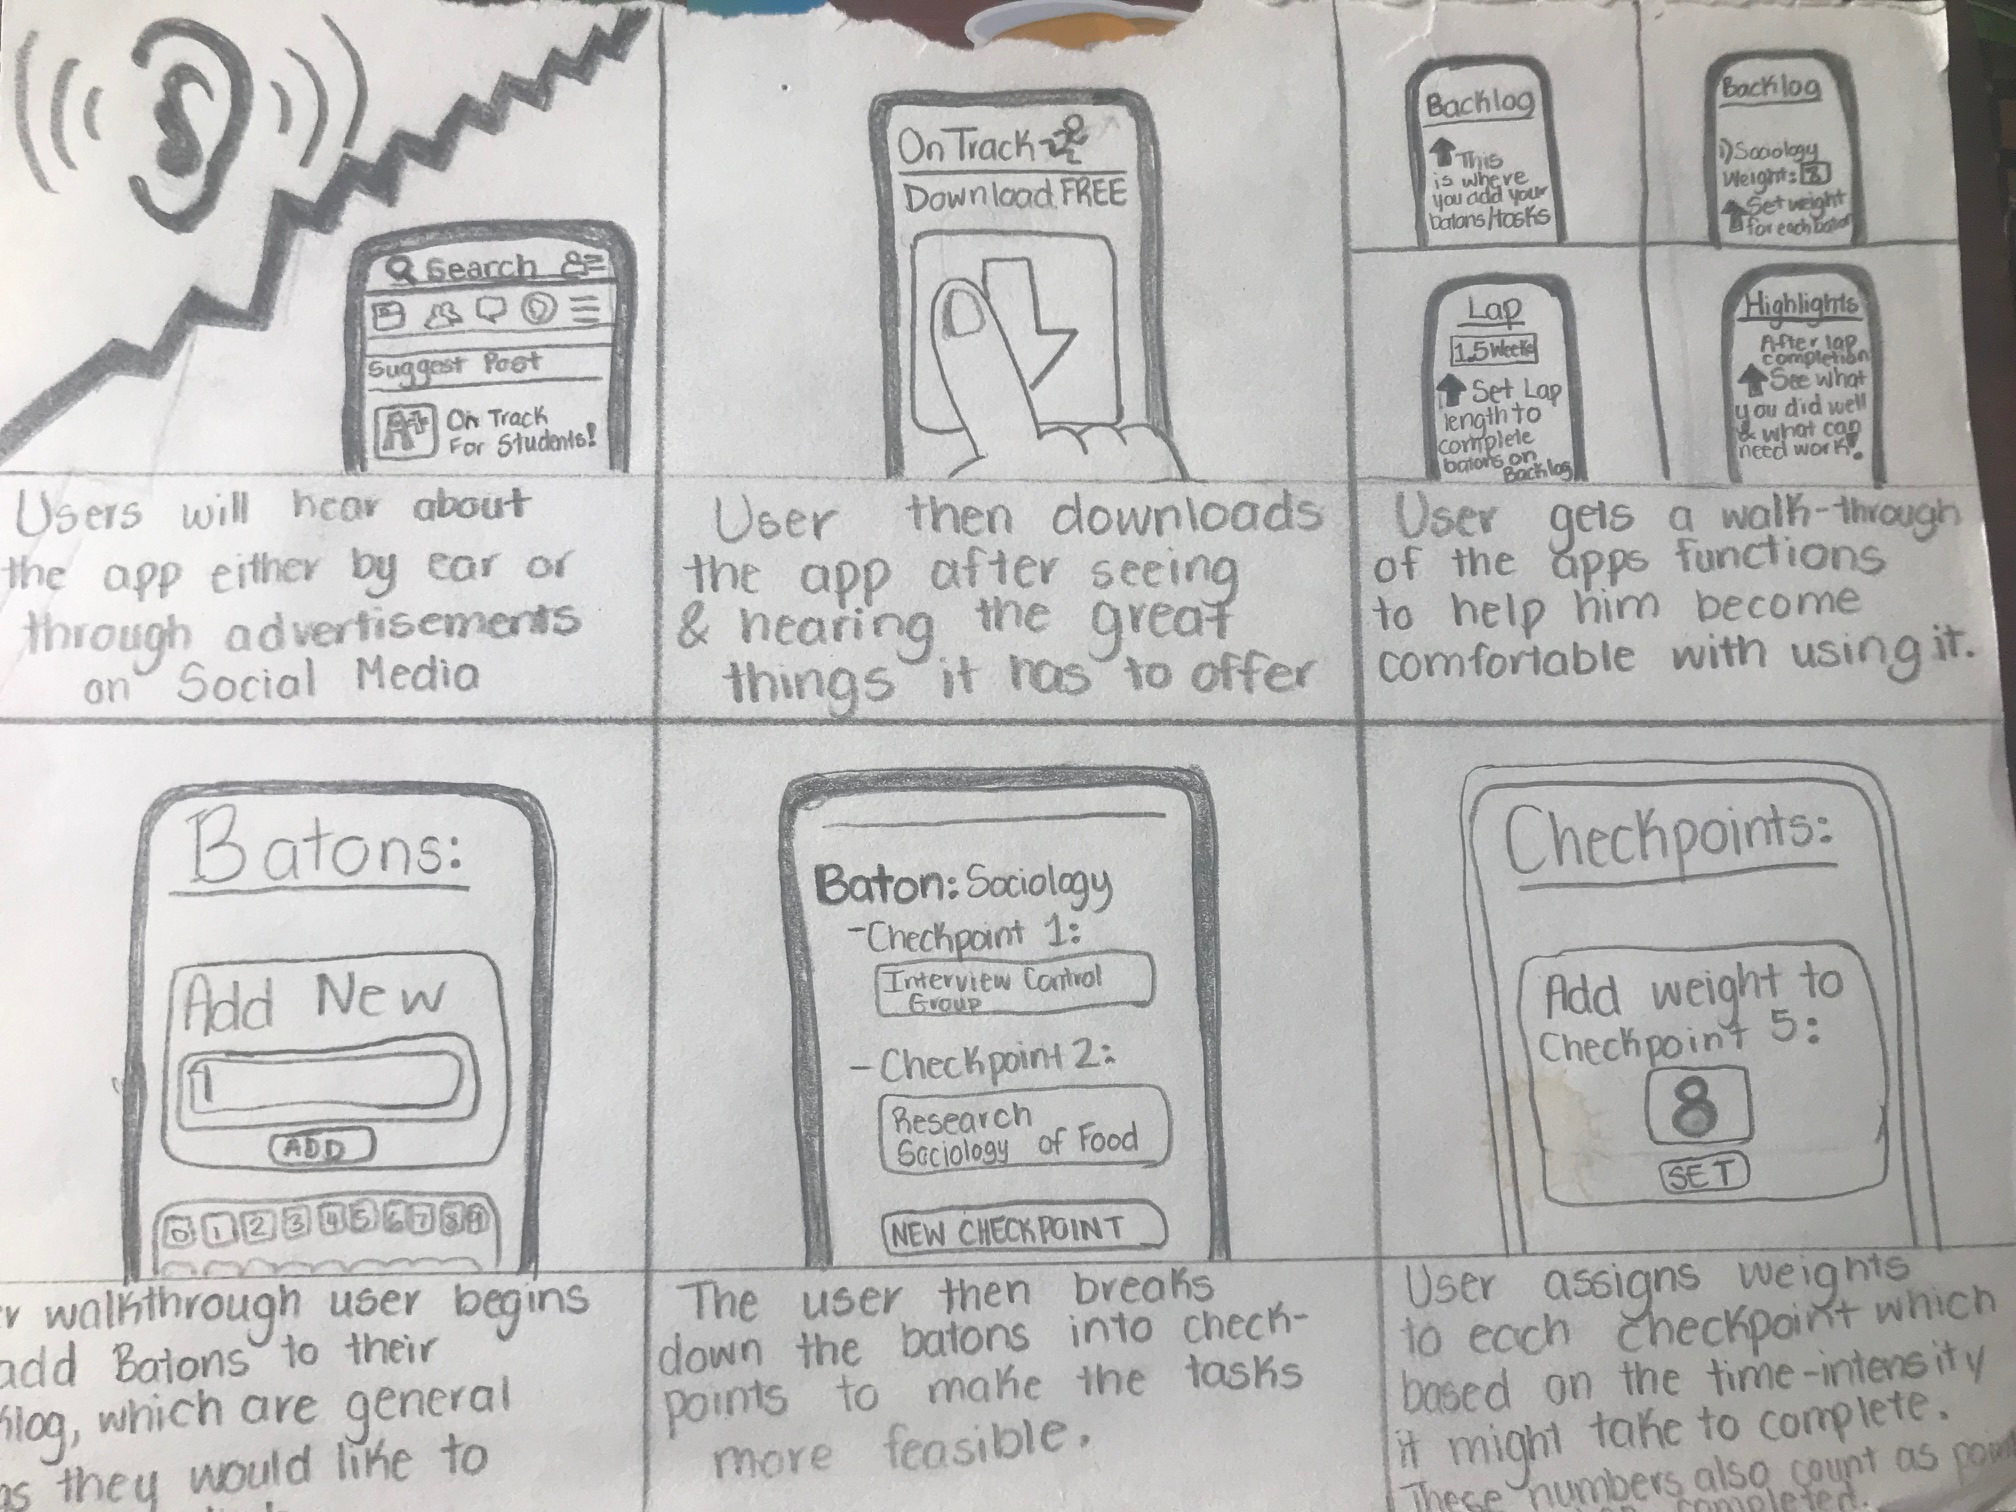 Search
Suggest Post
A+
On Track
For Students!
Users will hear about
the app either by ear or
through advertisements
on Social Media
On Track
Download FREE
User then downloads
the app after seeing
& hearing the great
things it has to offer
Backlog
This
is where
you add your
batons/tasks
Backlog
1) Sociology
Weight: 8
Set weight
for each baton
Lap
1.5 Weeks
Set Lap
length to
complete
batons on
Backlog
Highlights
After lap
completion
See what
you did well
& what can
need work!
User gets a walk-through
of the apps functions
to help him become
comfortable with using it.
Batons:
Add New
ADD
0 1 2 3 4 5 6 7 8 9
walkthrough user begins
add Batons to their
klog, which are general
as they would like to
Baton: Sociology
- Checkpoint 1:
Interview Control
Group
- Checkpoint 2:
Research
Sociology of Food
NEW CHECKPOINT
The user then breaks
down the batons into check-
points to make the tasks
more feasible.
Checkpoints:
Add weight to
Checkpoint 5:
8
SET
User assigns weights
to each checkpoint which
based on the time-intensity
it might take to complete.
These numbers also count as
completed